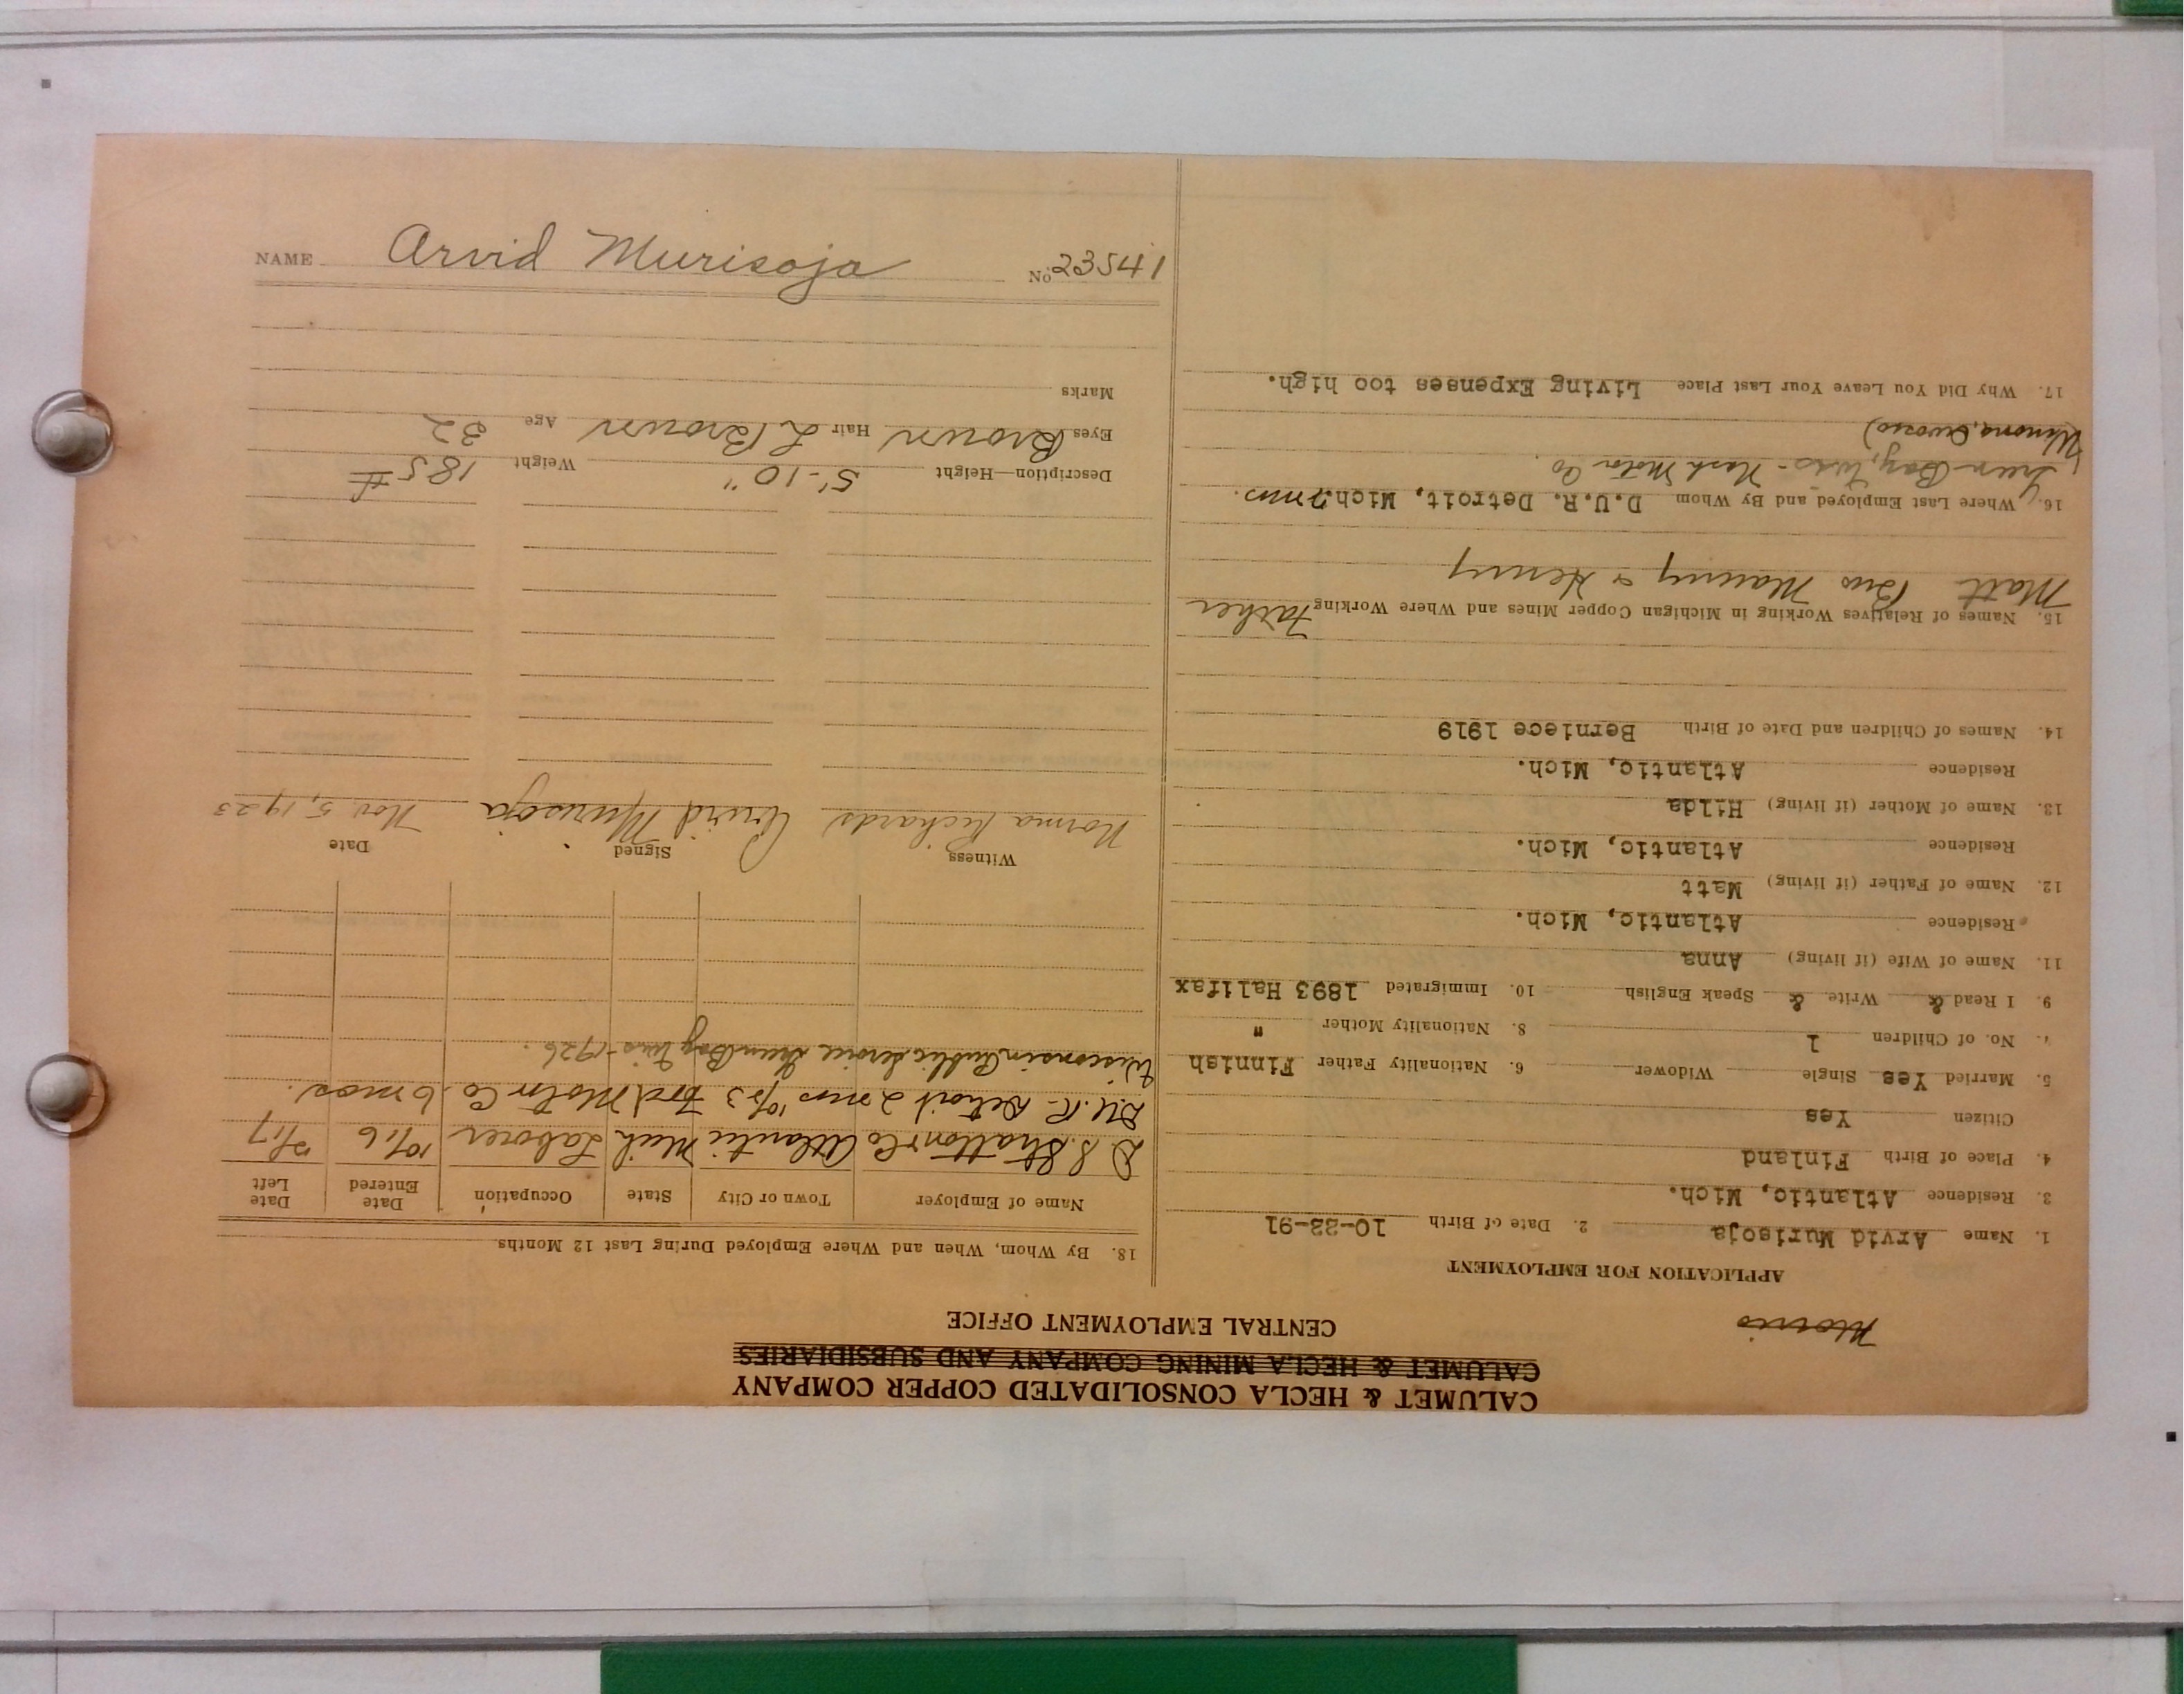 CALUMET & HECLA CONSOLIDATED COPPER COMPANY
CALUMET & HECLA MINING COMPANY AND SUBSIDIARIES
CENTRAL EMPLOYMENT OFFICE
Morris
APPLICATION FOR EMPLOYMENT
1. Name Arvid Murisoja 2. Date of Birth 10-22-91
3. Residence Atlantic, Mich.
4. Place of Birth Finland
Citizen Yes
5. Married Yes Single Widower 6. Nationality Father Finnish
7. No. of Children 1 8. Nationality Mother "
9. I Read & Write & Speak English 10. Immigrated 1893 Halifax
11. Name of Wife (if living) Anna
Residence Atlantic, Mich.
12. Name of Father (if living) Matt
Residence Atlantic, Mich.
13. Name of Mother (if living) Hilda
Residence Atlantic, Mich.
14. Names of Children and Date of Birth Berniece 1919
15. Names of Relatives Working in Michigan Copper Mines and Where Working Father
Matt Bros Manny & Henry
16. Where Last Employed and By Whom D.U.R. Detroit, Mich.
Green Bay, Wis - Nash Motor Co.
Winona, Owosso)
17. Why Did You Leave Your Last Place Living Expenses too high.
18. By Whom, When and Where Employed During Last 12 Months
Name of Employer Town or City State Occupation Date Entered Date Left
D. S. Stratton Co Atlantic Mich Laborer 10/16 2/17
D.U.R. - Detroit 2 mos 10/23 Ford Motor Co. 6 mos.
Wisconsin Public Service Green Bay Wis - 1926.
Witness Signed Date
Norma Richards Arvid Murisoja Nov. 5, 1923
Description—Height 5'-10" Weight 185 #
Eyes Brown Hair L Brown Age 32
Marks
NAME Arvid Murisoja No 23541